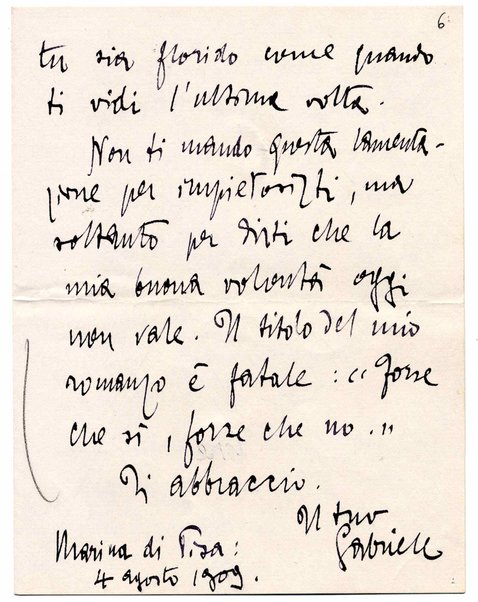 6.
tu sia florido come quando
ti vidi l'ultima volta.
Non ti mando questa lamenta-
zione per impietosirti, ma
soltanto per dirti che la
mia buona volontà oggi
non vale. Il titolo del mio
romanzo è fatale: "Forse
che sì, forse che no."
Ti abbraccio.
Il tuo
Gabriele
Marina di Pisa:
4 agosto 1909.